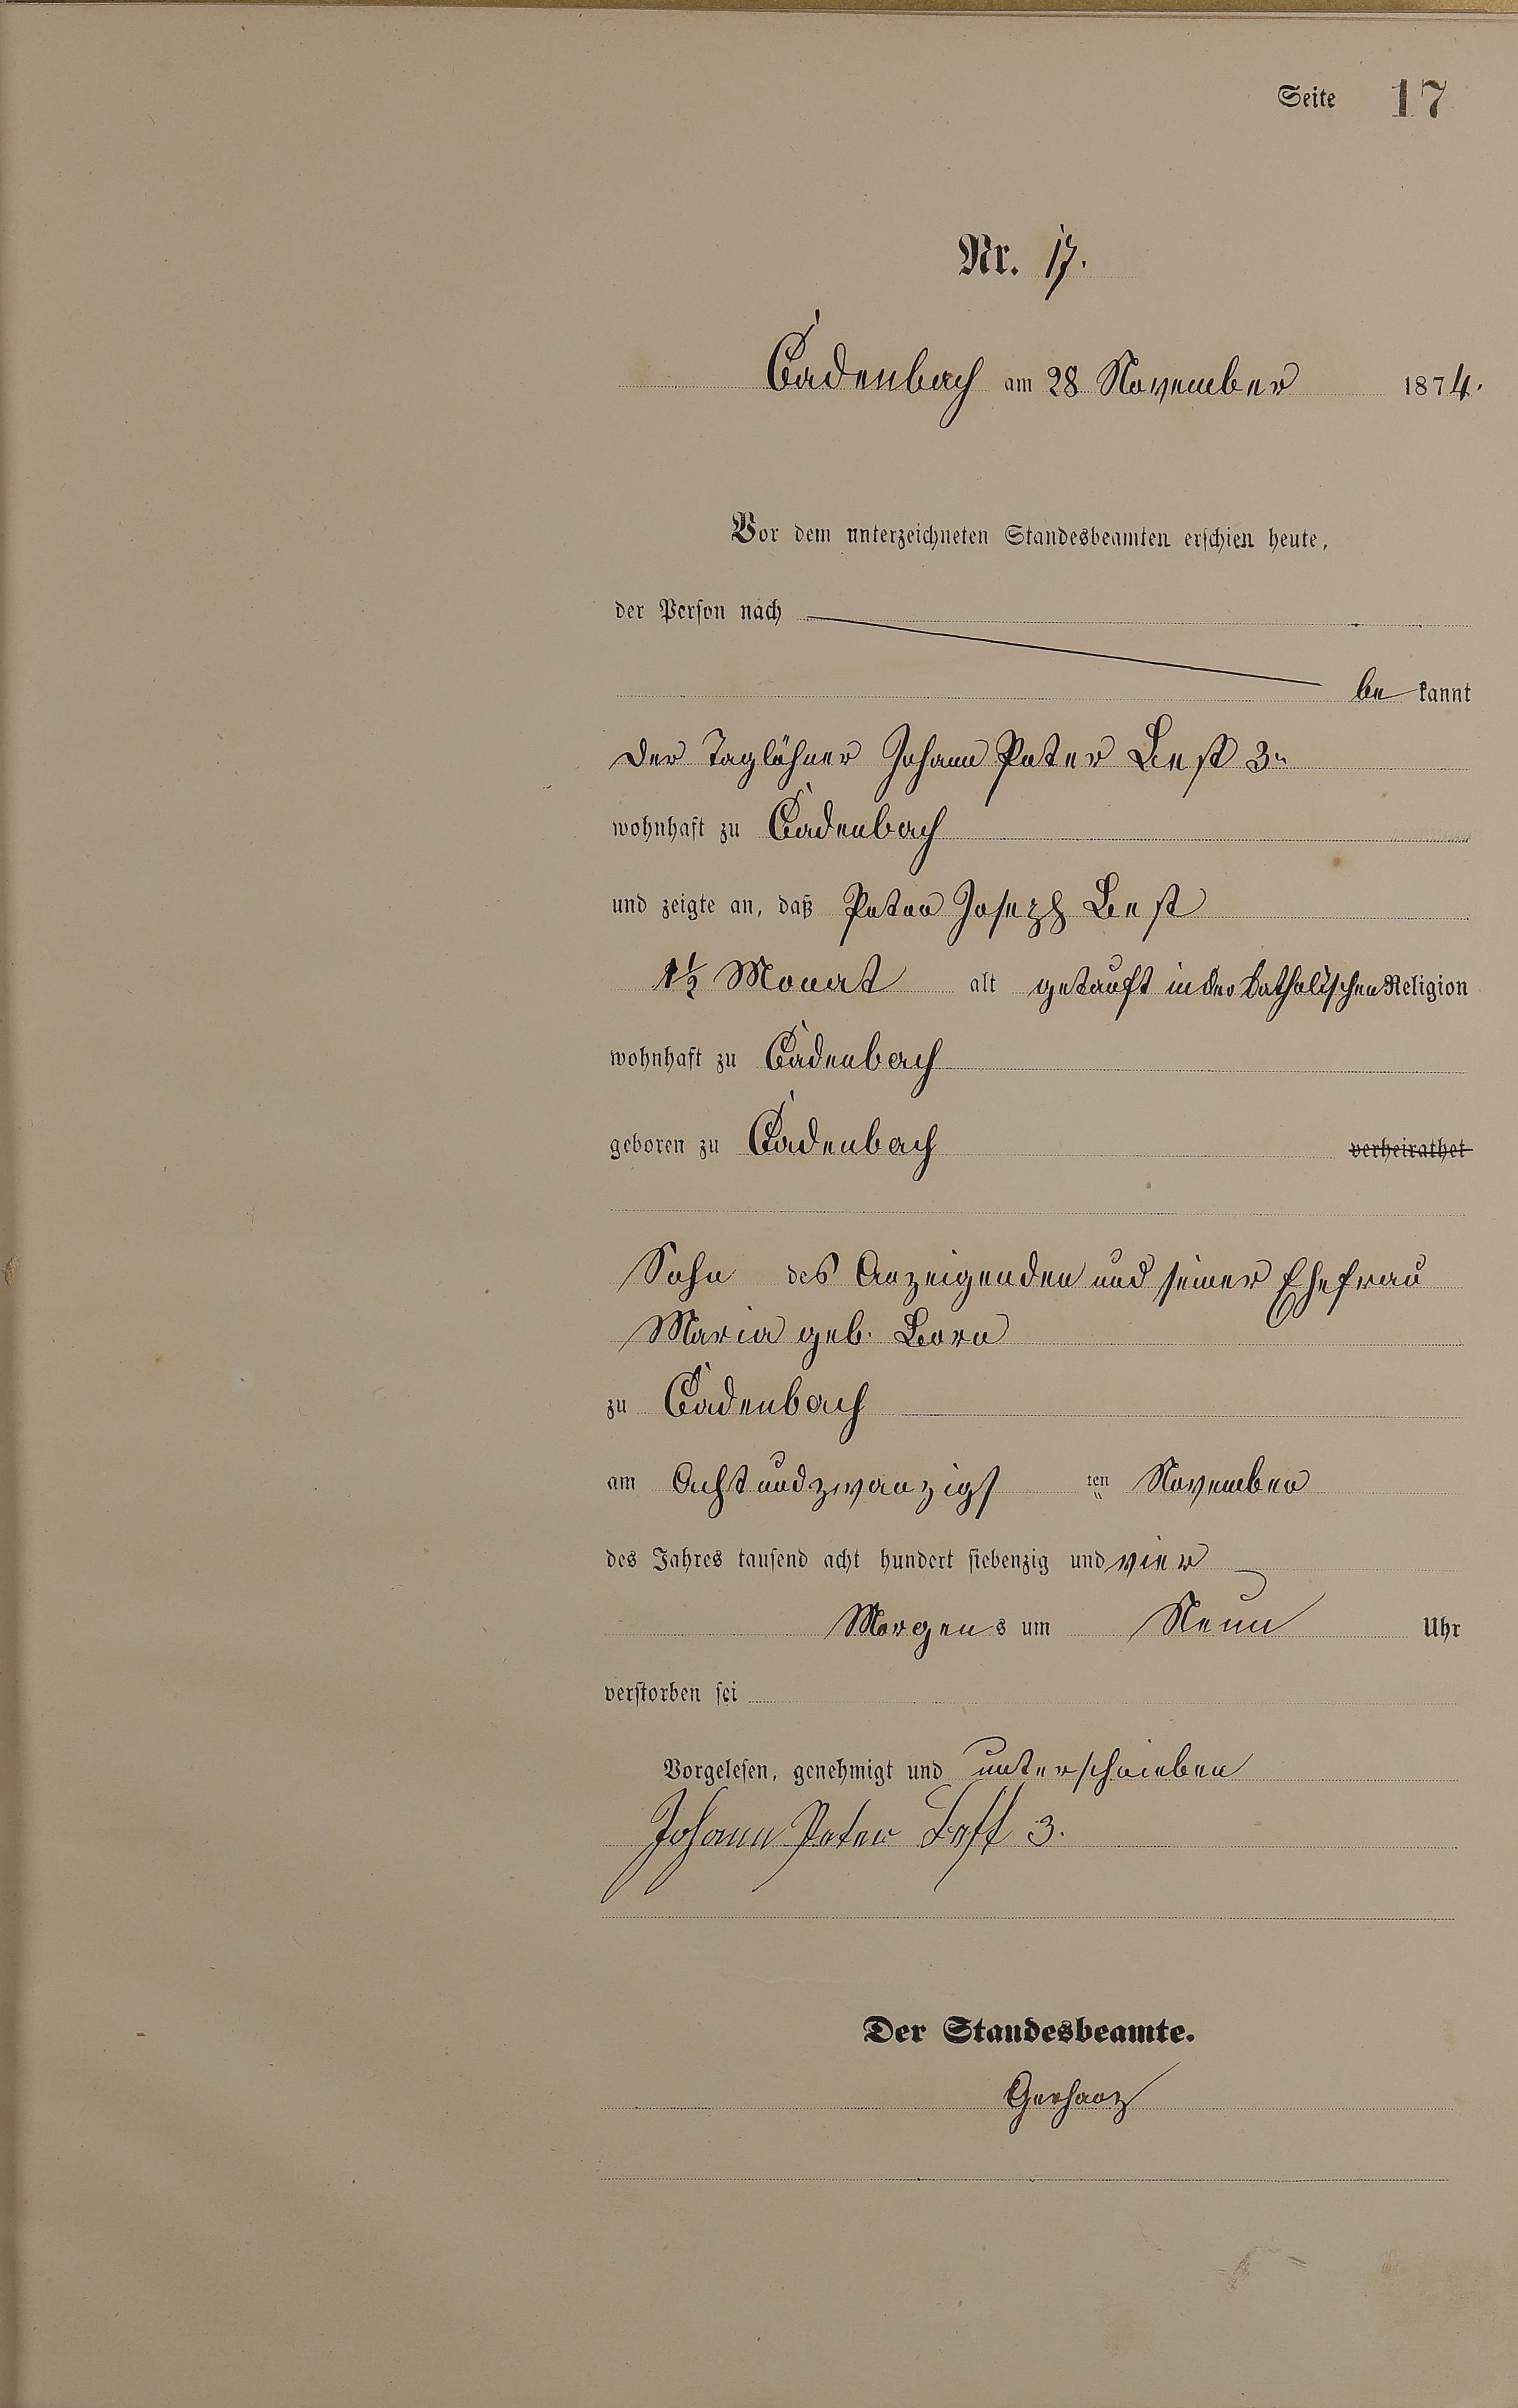 Seite 17
Nr. 17.
Cadenbach am 28 November 1874.
Vor dem unterzeichneten Standesbeamten erschien heute,
der Person nach
be kannt
der Taglöhner Johann Peter Best 3r
wohnhaft zu Cadenbach
und zeigte an, daß Peter Joseph Best
1½ Monat alt getauft in der katholischen Religion
wohnhaft zu Cadenbach
geboren zu Cadenbach verheirathet
Sohn des Anzeigenden und seiner Ehefrau
Maria geb. Born
zu Cadenbach
am Achtundzwanzigs ten November
des Jahres tausend acht hundert siebenzig und vier
Morgens um Neun Uhr
verstorben sei
Vorgelesen, genehmigt und unterschrieben
Johann Peter Best 3.
Der Standesbeamte.
Gerharz